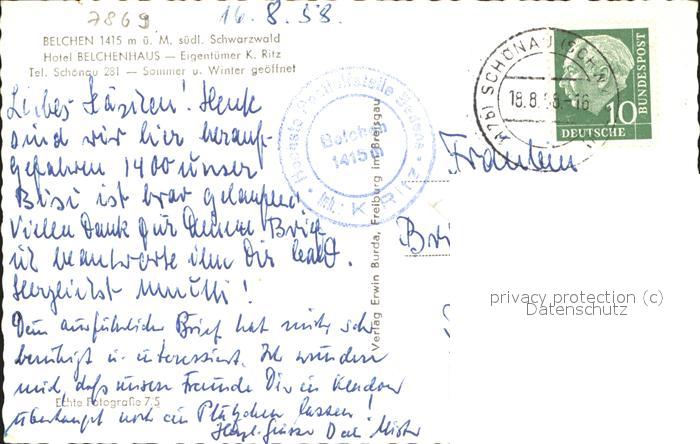 7869
16.8.58.
BELCHEN 1415 m ü. M. südl. Schwarzwald
Hotel BELCHENHAUS — Eigentümer K. Ritz
Tel. Schönau 281 — Sommer u. Winter geöffnet
SCHÖNAU (SCHW
18.8.58.-16
DEUTSCHE
BUNDESPOST
10
Belchen
1415 m
Inh.: K. RITZ
Liebes! Heute
sind wir hier herauf-
gefahren 1400 unser
Bisi ist brav gelaufen!
Vielen Dank für Deinen Brief
ich beantworte ihn Dir bald.
Herzlichst Mutti!
Dein ausführlicher Brief hat mich sehr
beruhigt u. interessiert. Ich wundere
mich, daß unsere Freunde Dir in
überhaupt noch ein Plätzchen lassen!
Herzl. Grüsse Dein
Echte Fotografie 7/5
Verlag Erwin Burda, Freiburg im Breisgau
Fräulein
Bri
privacy protection (c)
Datenschutz